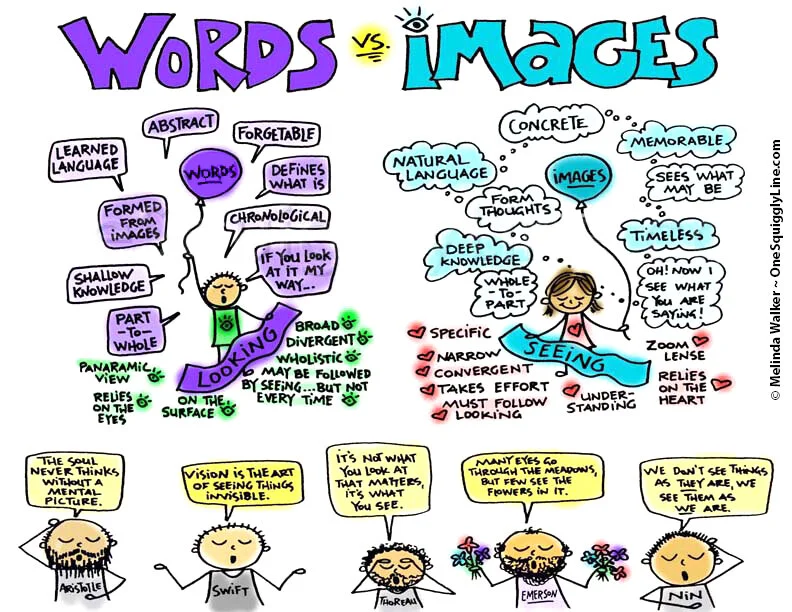 WORDS VS. IMAGES
ABSTRACT
FORGETABLE
LEARNED
LANGUAGE
WORDS
DEFINES
WHAT IS
FORMED
FROM
IMAGES
CHRONOLOGICAL
SHALLOW
KNOWLEDGE
IF YOU LOOK
AT IT MY
WAY...
PART
-TO-
WHOLE
LOOKING
PANARAMIC
VIEW
RELIES
ON THE
EYES
ON THE
SURFACE
BROAD
DIVERGENT
WHOLISTIC
MAY BE FOLLOWED
BY SEEING...BUT NOT
EVERY TIME
CONCRETE
MEMORABLE
NATURAL
LANGUAGE
IMAGES
SEES WHAT
MAY BE
FORM
THOUGHTS
TIMELESS
DEEP
KNOWLEDGE
WHOLE
-TO-
PART
OH! NOW I
SEE WHAT
YOU ARE
SAYING!
SEEING
SPECIFIC
NARROW
CONVERGENT
TAKES EFFORT
MUST FOLLOW
LOOKING
UNDER-
STANDING
ZOOM
LENSE
RELIES
ON THE
HEART
© Melinda Walker ~ OneSquigglyLine.com
THE SOUL
NEVER THINKS
WITHOUT A
MENTAL
PICTURE.
ARISTOTLE
VISION IS THE ART
OF SEEING THINGS
INVISIBLE.
SWIFT
IT'S NOT WHAT
YOU LOOK AT
THAT MATTERS,
IT'S WHAT
YOU SEE.
THOREAU
MANY EYES GO
THROUGH THE MEADOWS,
BUT FEW SEE THE
FLOWERS IN IT.
EMERSON
WE DON'T SEE THINGS
AS THEY ARE, WE
SEE THEM AS
WE ARE.
NIN